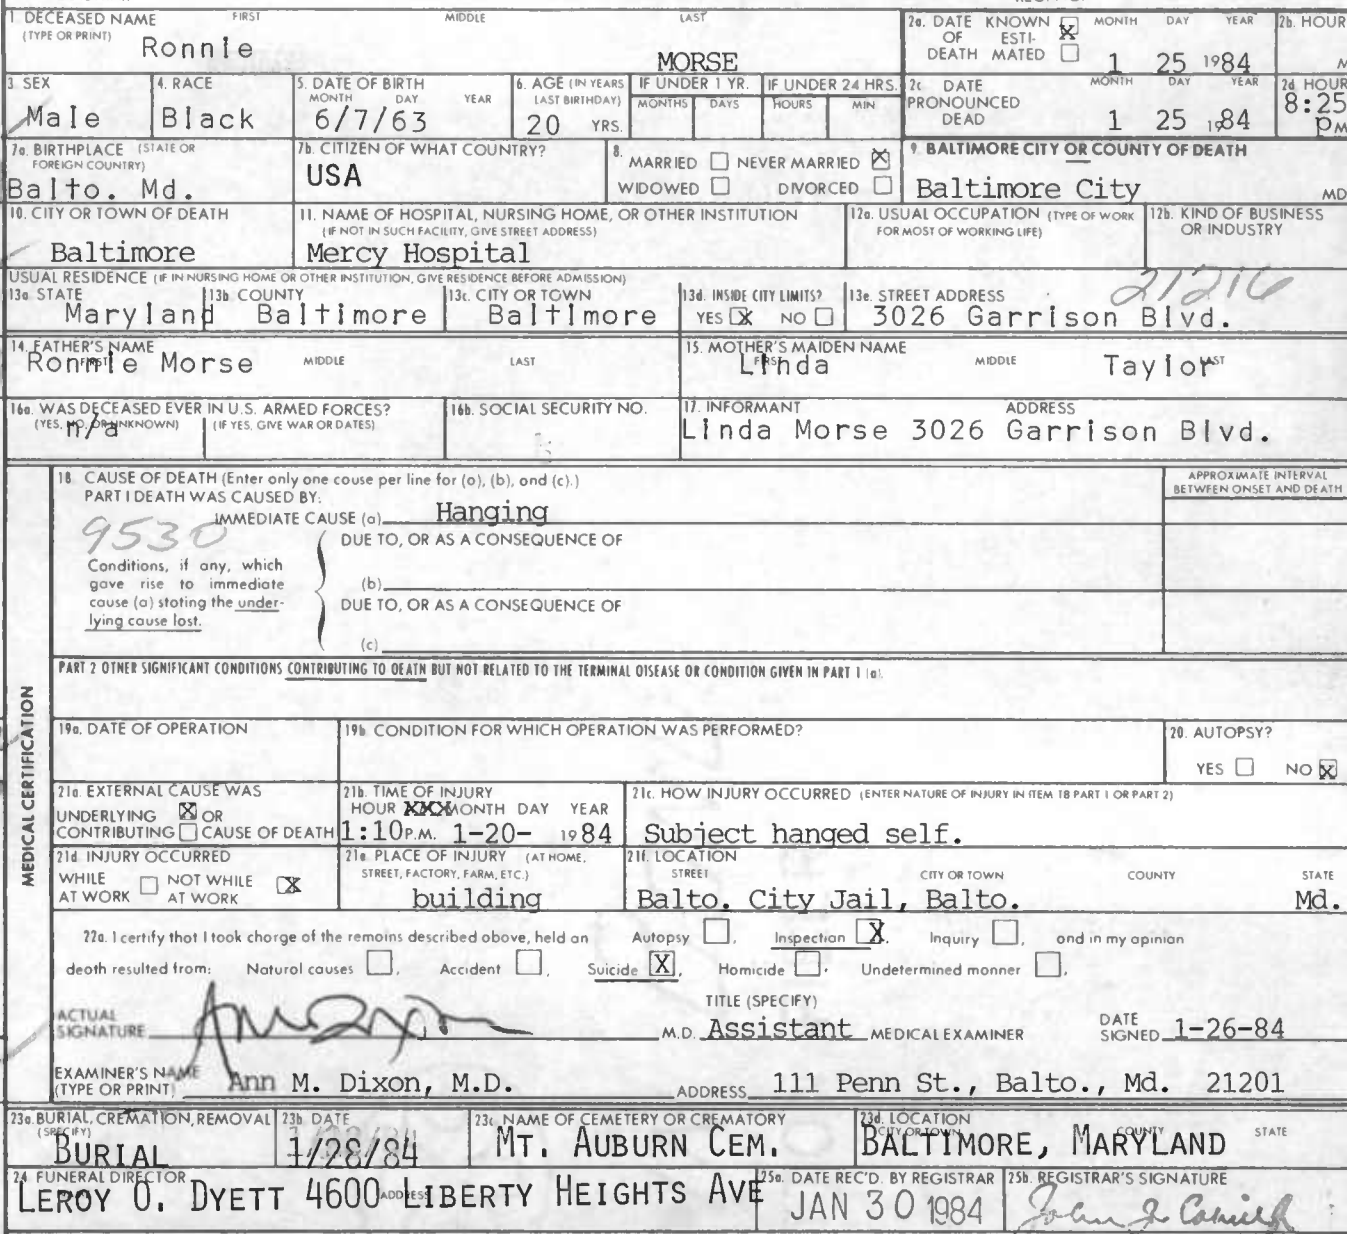 1. DECEASED NAME FIRST MIDDLE LAST
(TYPE OR PRINT)
Ronnie MORSE
2a. DATE KNOWN X MONTH DAY YEAR
OF ESTI-
DEATH MATED 1 25 1984
2b. HOUR
M
3. SEX
Male
4. RACE
Black
5. DATE OF BIRTH
MONTH DAY YEAR
6/7/63
6. AGE (IN YEARS
LAST BIRTHDAY)
20 YRS.
IF UNDER 1 YR.
MONTHS DAYS
IF UNDER 24 HRS.
HOURS MIN
2c. DATE MONTH DAY YEAR
PRONOUNCED
DEAD 1 25 1984
2d HOUR
8:25
PM
7a. BIRTHPLACE (STATE OR
FOREIGN COUNTRY)
Balto. Md.
7b. CITIZEN OF WHAT COUNTRY?
USA
8.
MARRIED NEVER MARRIED X
WIDOWED DIVORCED
9. BALTIMORE CITY OR COUNTY OF DEATH
Baltimore City MD
10. CITY OR TOWN OF DEATH
Baltimore
11. NAME OF HOSPITAL, NURSING HOME, OR OTHER INSTITUTION
(IF NOT IN SUCH FACILITY, GIVE STREET ADDRESS)
Mercy Hospital
12a. USUAL OCCUPATION (TYPE OF WORK
FOR MOST OF WORKING LIFE)
12b. KIND OF BUSINESS
OR INDUSTRY
USUAL RESIDENCE (IF IN NURSING HOME OR OTHER INSTITUTION, GIVE RESIDENCE BEFORE ADMISSION)
13a. STATE
Maryland
13b. COUNTY
Baltimore
13c. CITY OR TOWN
Baltimore
13d. INSIDE CITY LIMITS?
YES X NO
13e. STREET ADDRESS 21216
3026 Garrison Blvd.
14. FATHER'S NAME
FIRST MIDDLE LAST
Ronnie Morse
15. MOTHER'S MAIDEN NAME
FIRST MIDDLE LAST
Linda Taylor
16a. WAS DECEASED EVER IN U.S. ARMED FORCES?
(YES, NO, OR UNKNOWN) (IF YES, GIVE WAR OR DATES)
n/a
16b. SOCIAL SECURITY NO.
17. INFORMANT ADDRESS
Linda Morse 3026 Garrison Blvd.
MEDICAL CERTIFICATION
18. CAUSE OF DEATH (Enter only one cause per line for (a), (b), and (c).)
PART I DEATH WAS CAUSED BY:
IMMEDIATE CAUSE (a) Hanging
9530
DUE TO, OR AS A CONSEQUENCE OF
Conditions, if any, which
gave rise to immediate
cause (a) stating the under-
lying cause last.
(b)
DUE TO, OR AS A CONSEQUENCE OF
(c)
APPROXIMATE INTERVAL
BETWEEN ONSET AND DEATH
PART 2 OTHER SIGNIFICANT CONDITIONS CONTRIBUTING TO DEATH BUT NOT RELATED TO THE TERMINAL DISEASE OR CONDITION GIVEN IN PART 1 (a).
19a. DATE OF OPERATION
19b. CONDITION FOR WHICH OPERATION WAS PERFORMED?
20. AUTOPSY?
YES NO X
21a. EXTERNAL CAUSE WAS
UNDERLYING X OR
CONTRIBUTING CAUSE OF DEATH
21b. TIME OF INJURY
HOUR XXX MONTH DAY YEAR
1:10 P.M. 1-20- 1984
21c. HOW INJURY OCCURRED (ENTER NATURE OF INJURY IN ITEM 18 PART 1 OR PART 2)
Subject hanged self.
21d. INJURY OCCURRED
WHILE NOT WHILE X
AT WORK AT WORK
21e. PLACE OF INJURY (AT HOME,
STREET, FACTORY, FARM, ETC.)
building
21f. LOCATION
STREET CITY OR TOWN COUNTY STATE
Balto. City Jail, Balto. Md.
22a. I certify that I took charge of the remains described above, held an Autopsy , Inspection X, Inquiry , and in my opinion
death resulted from: Natural causes , Accident , Suicide X, Homicide , Undetermined manner .
ACTUAL
SIGNATURE M.D.
TITLE (SPECIFY)
Assistant MEDICAL EXAMINER
DATE
SIGNED 1-26-84
EXAMINER'S NAME
(TYPE OR PRINT) Ann M. Dixon, M.D.
ADDRESS 111 Penn St., Balto., Md. 21201
23a. BURIAL, CREMATION, REMOVAL
(SPECIFY)
BURIAL
23b. DATE
1/28/84
23c. NAME OF CEMETERY OR CREMATORY
MT. AUBURN CEM.
23d. LOCATION
CITY OR TOWN COUNTY STATE
BALTIMORE, MARYLAND
24. FUNERAL DIRECTOR
ADDRESS
LEROY O. DYETT 4600 LIBERTY HEIGHTS AVE
25a. DATE REC'D. BY REGISTRAR
JAN 30 1984
25b. REGISTRAR'S SIGNATURE